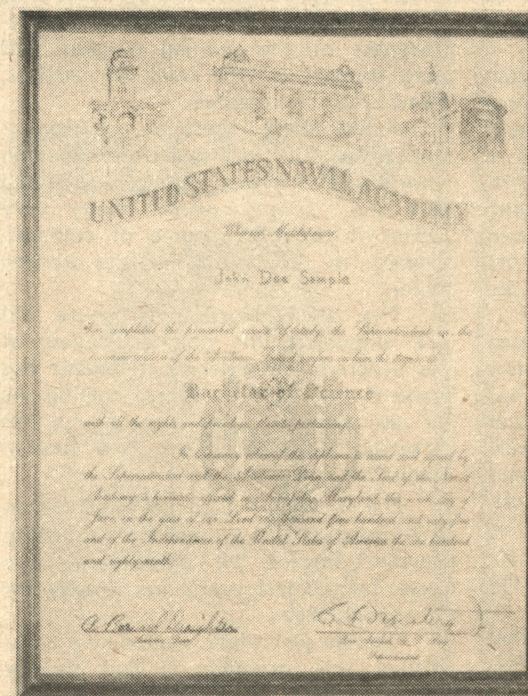 UNITED STATES NAVAL ACADEMY
Whereas Midshipman
John Doe Sample
has completed the prescribed course of study, the Superintendent on the
recommendation of the Academic Board confers on him the degree of
Bachelor of Science
with all the rights and privileges thereto pertaining
In testimony whereof this diploma is issued and signed by
the Superintendent and the Academic Dean and the Seal of the Naval
Academy is hereunto affixed at Annapolis, Maryland, this ninth day of
June in the year of our Lord one thousand nine hundred and sixty-five
and of the Independence of the United States of America the one hundred
and eighty-ninth
Academic Dean
Rear Admiral, U.S. Navy
Superintendent